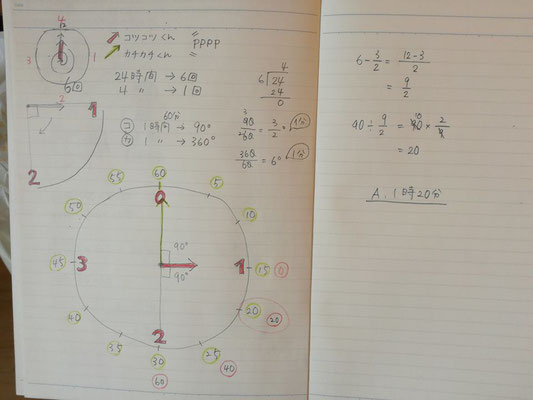 4
12
3
1
6回
2
コツコツくん
カチカチくん
PPPP
24時間 → 6回
4 〃 → 1回
4
6 24
24
0
1
2
60分
コ 1時間 → 90°
カ 1 〃 → 360°
90/60 = 3/2° 1分
360/60 = 6° 1分
60
0
5
10
1
15
0
20
20
25
40
2
30
60
35
40
45
3
50
55
90°
90°
6 - 3/2 = 12-3/2
= 9/2
90 ÷ 9/2 = 90 × 2/9
10
= 20
A. 1時20分